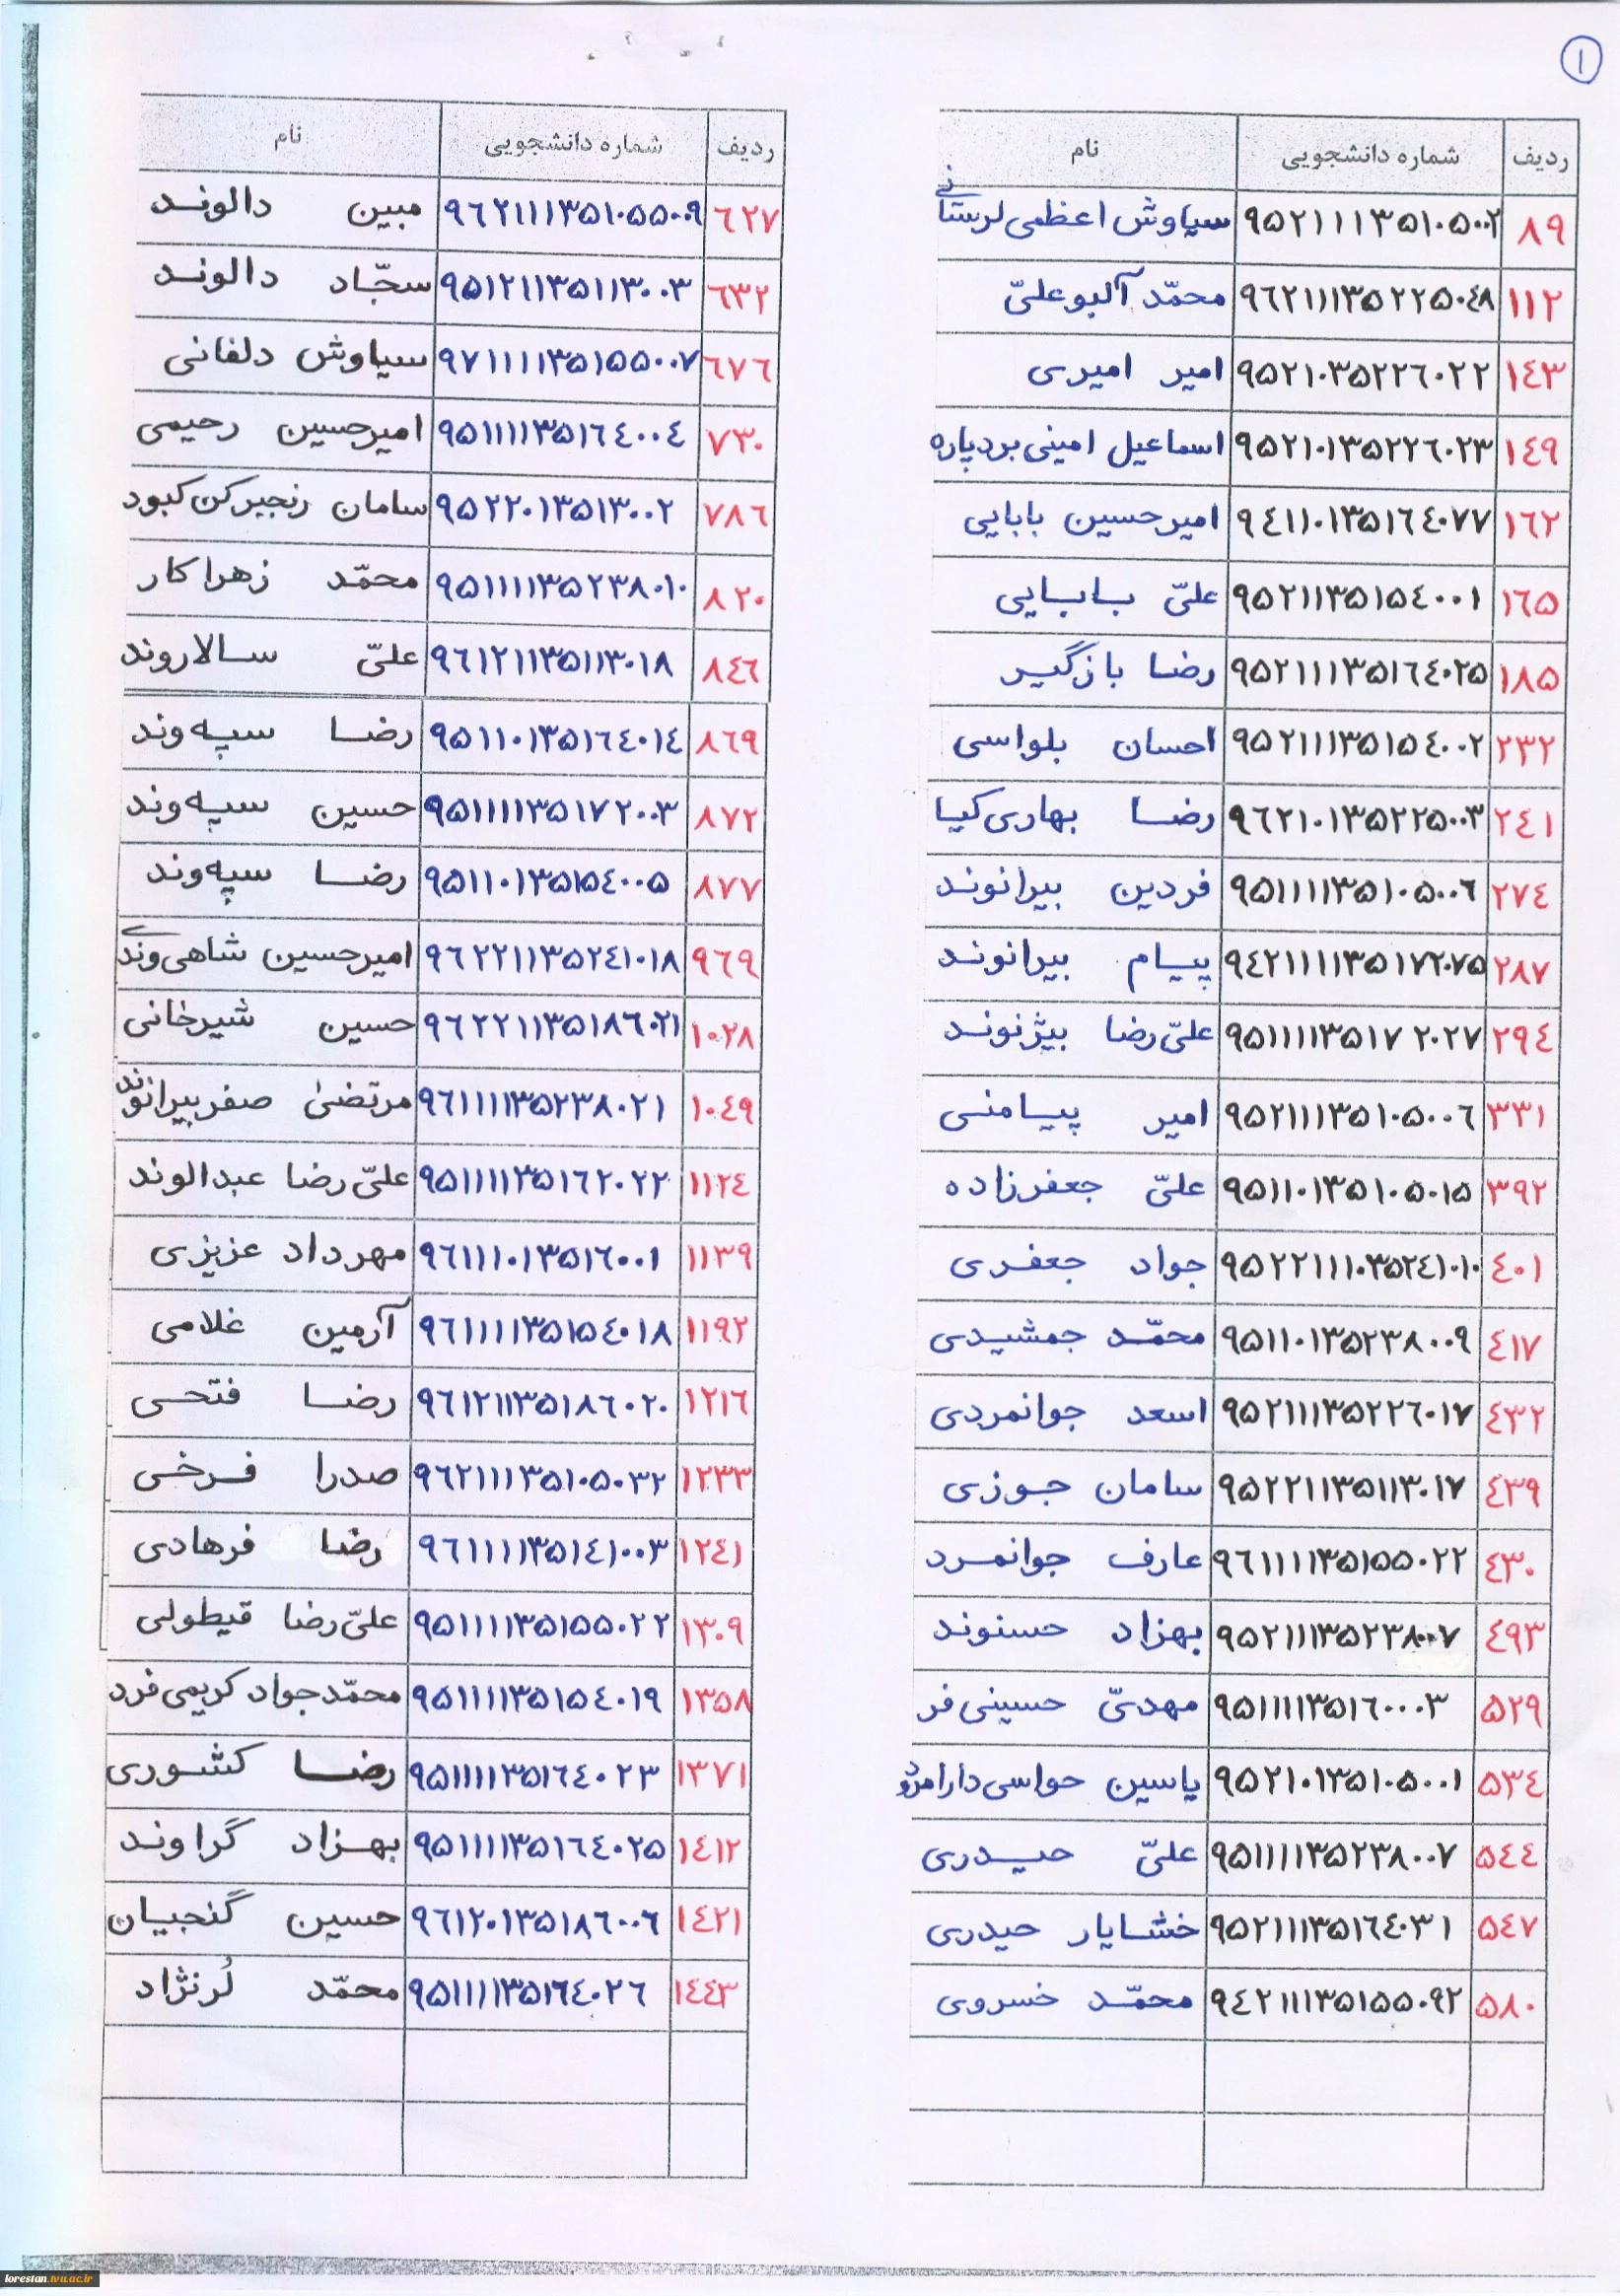 ۱
ردیف شماره دانشجویی نام
۸۹ ۹۵۲۱۱۱۳۵۱۰۵۰۰۲ سیاوش اعظمی لرستانی
۱۱۲ ۹۶۲۱۱۱۳۵۲۲۵۰۴۸ محمّد آلبوعلیّ
۱۴۳ ۹۵۲۱۰۳۵۲۲۶۰۲۲ امیر امیری
۱۴۹ ۹۵۲۱۰۱۳۵۲۲۶۰۲۳ اسماعیل امینی بردپاره
۱۶۲ ۹۴۱۱۰۱۳۵۱۶۴۰۷۷ امیرحسین بابایی
۱۶۵ ۹۵۲۱۱۳۵۱۵۴۰۰۱ علیّ بابایی
۱۸۵ ۹۵۲۱۱۱۳۵۱۶۴۰۲۵ رضا بازگیر
۲۳۲ ۹۵۲۱۱۱۳۵۱۵۴۰۰۲ احسان بلواسی
۲۴۱ ۹۶۲۱۰۱۳۵۲۲۵۰۰۳ رضا بهاری کیا
۲۷۴ ۹۵۱۱۱۱۳۵۱۰۵۰۰۶ فردین بیرانوند
۲۸۷ ۹۴۲۱۱۱۱۳۵۱۷۲۰۷۵ پیام بیرانوند
۲۹۴ ۹۵۱۱۱۱۳۵۱۷۲۰۲۷ علیّ رضا بیژنوند
۳۳۱ ۹۵۲۱۱۱۳۵۱۰۵۰۰۶ امیر پیامنی
۳۹۲ ۹۵۱۱۰۱۳۵۱۰۵۰۱۵ علیّ جعفرزاده
۴۰۱ ۹۵۲۲۱۱۱۰۳۵۲۴۱۰۱۰ جواد جعفری
۴۱۷ ۹۵۱۱۰۱۳۵۲۳۸۰۰۹ محمّد جمشیدی
۴۳۲ ۹۵۲۱۱۱۳۵۲۲۶۰۱۷ اسعد جوانمردی
۴۳۹ ۹۵۲۲۱۱۳۵۱۱۳۰۱۷ سامان جوزی
۴۳۰ ۹۶۱۱۱۱۳۵۱۵۵۰۲۲ عارف جوانمرد
۴۹۳ ۹۵۲۱۱۱۳۵۲۳۸۰۰۷ بهزاد حسنوند
۵۲۹ ۹۵۱۱۱۱۳۵۱۶۰۰۰۳ مهدیّ حسینی فر
۵۳۴ ۹۵۲۱۰۱۳۵۱۰۵۰۰۱ یاسین حواسی
۵۴۴ ۹۵۱۱۱۱۳۵۲۳۸۰۰۷ علیّ حیدری
۵۴۷ ۹۵۲۱۱۱۳۵۱۶۴۰۳۱ خشایار حیدری
۵۸۰ ۹۴۲۱۱۱۳۵۱۵۵۰۹۲ محمّد خسروی
ردیف شماره دانشجویی نام
۶۲۷ ۹۶۲۱۱۱۳۵۱۰۵۵۰۰۹ مبین دالوند
۶۳۲ ۹۵۱۲۱۱۳۵۱۱۳۰۰۳ سجّاد دالوند
۶۷۶ ۹۷۱۱۱۱۳۵۱۵۵۰۰۷ سیاوش دلفانی
۷۳۰ ۹۵۱۱۱۱۳۵۱۶۴۰۰۴ امیرحسین رحیمی
۷۸۶ ۹۵۲۲۰۱۳۵۱۳۰۰۲ سامان رنجبرکن کبود
۸۲۰ ۹۵۱۱۱۱۳۵۲۳۸۰۱۰ محمّد زهراکار
۸۴۶ ۹۶۱۲۱۱۳۵۱۱۳۰۱۸ علیّ سالاروند
۸۶۹ ۹۵۱۱۰۱۳۵۱۶۴۰۱۴ رضا سپه وند
۸۷۲ ۹۵۱۱۱۱۳۵۱۷۲۰۰۳ حسین سپه وند
۸۷۷ ۹۵۱۱۰۱۳۵۱۵۴۰۰۵ رضا سپه وند
۹۶۹ ۹۶۲۲۱۱۳۵۲۴۱۰۱۸ امیرحسین شاهی وندی
۱۰۲۸ ۹۶۲۲۱۱۳۵۱۸۶۰۲۱ حسین شیرخانی
۱۰۴۹ ۹۶۱۱۱۱۳۵۲۳۸۰۲۱ مرتضیٰ صفر بیرانوند
۱۱۲۴ ۹۵۱۱۱۱۳۵۱۶۲۰۲۲ علیّ رضا عبدالوند
۱۱۳۹ ۹۶۱۱۱۰۱۳۵۱۶۰۰۱ مهرداد عزیزی
۱۱۹۲ ۹۶۱۱۱۱۳۵۱۵۴۰۱۸ آرمین غلامی
۱۲۱۶ ۹۶۱۲۱۱۳۵۱۸۶۰۲۰ رضا فتحی
۱۲۳۳ ۹۶۲۱۱۱۳۵۱۰۵۰۳۲ صدرا فرخی
۱۲۴۱ ۹۶۱۱۱۱۳۵۱۴۱۰۰۳ رضا فرهادی
۱۳۰۹ ۹۵۱۱۱۱۳۵۱۵۵۰۲۲ علیّ رضا قیطولی
۱۳۵۸ ۹۵۱۱۱۱۳۵۱۵۴۰۱۹ محمّدجواد کریمی فرد
۱۳۷۱ ۹۵۱۱۱۱۳۵۱۶۴۰۲۳ رضا کشوری
۱۴۱۲ ۹۵۱۱۱۱۳۵۱۶۴۰۲۵ بهزاد گراوند
۱۴۲۱ ۹۶۱۲۰۱۳۵۱۸۶۰۰۶ حسین گنجیان
۱۴۴۳ ۹۵۱۱۱۱۳۵۱۶۴۰۲۶ محمّد لُرنژاد
lorestan.tvu.ac.ir